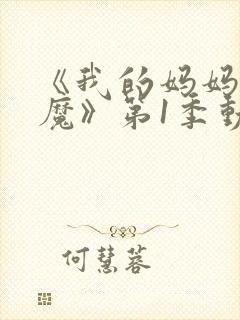 《我的妈妈
魔》第1季動
何慧蓉